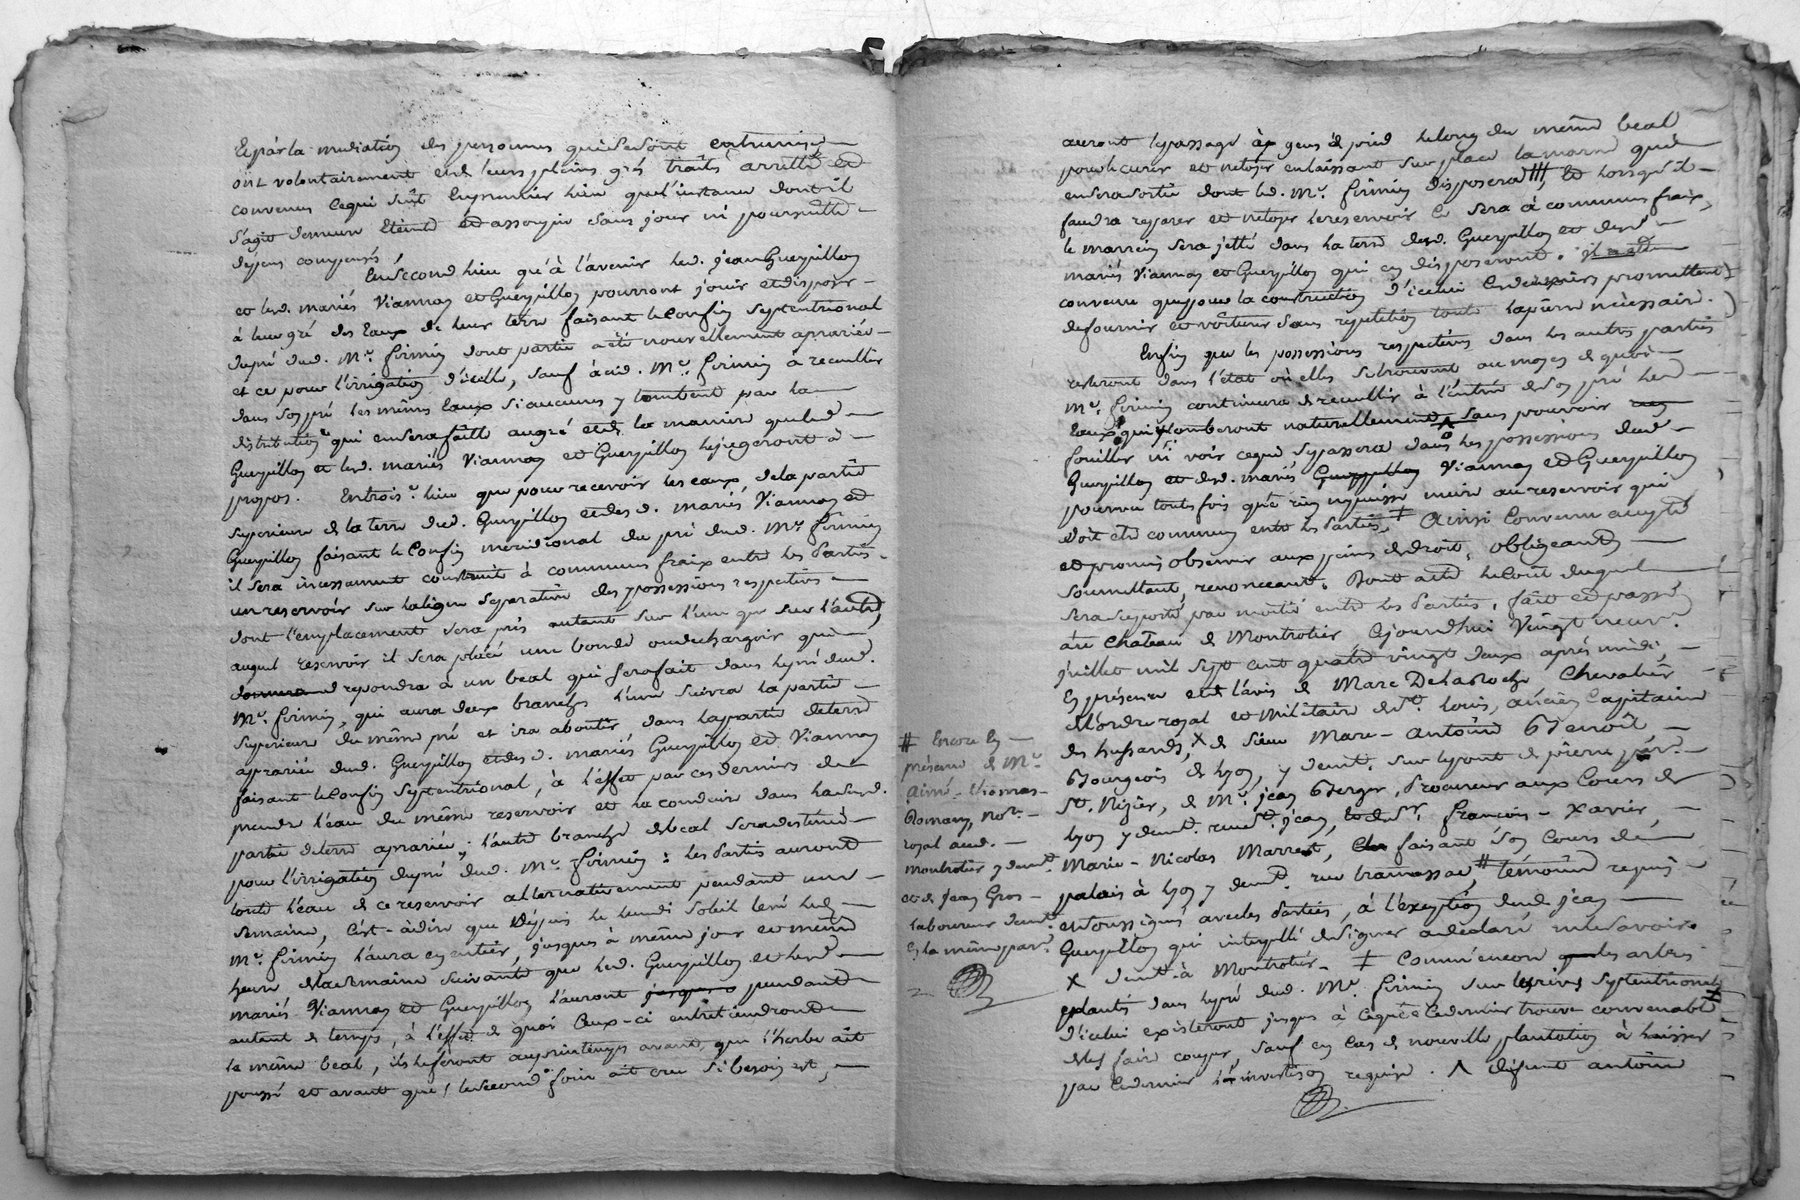 Et par la mediation des personnes qui se sont entremises
ont volontairement et de leurs pleins grés traité arretté et
convenu ce qui suit En premier lieu que l'instance dont il
s'agit demeure Eteinte et assoupie sans jour ni poursuitte
depens compensés
En second lieu qu'à l'avenir led. jean Guerpillon
et led. mariés Viannay et Guerpillon pourront jouir et disposer
à leur gré des Eaux de leur terre faisant le Confin septentrional
dupré dud. Mr. firmin dont partie a été nouvellement aprariée
et ce pour l'irrigation d'icelle, sauf aud. Mr. firmin à recueillir
dans son pré les mêmes Eaux si aucunes y tombent par la
distribution qui en sera faitte au gré et de la maniere que led.
Guerpillon et led. mariés Viannay et Guerpillon le jugeront à
propos. En trois.e lieu que pour recevoir les eaux, de la partie
superieure de la terre dud. Guerpillon et desd. mariés Viannay et
Guerpillon faisant le Confin meridional du pré dud. Mr. firmin
il sera incessament construit à communs fraix entre les Parties
un reservoir sur la ligne separative des possessions respectives
dont l'emplacement sera pris autant sur l'une que sur l'autre,
auquel reservoir il sera placé une bonde ou dechargoir qui
repondra à un beal qui sera fait dans le pré dud.
Mr. firmin, qui aura deux branches l'une suivra la partie
superieure du même pré et ira aboutir dans la partie de terre
aprariée dud. Guerpillon et desd. mariés Guerpillon et Viannay
faisant le Confin septentrional, à l'effet par ces derniers de
prendre l'eau du même reservoir et la conduire dans lad.
partie de terre aprariée; l'autre branche de beal sera destinée
pour l'irrigation du pré dud. Mr. firmin: les Parties auront
toute l'eau de ce reservoir alternativement pendant une
semaine, C'est-àdire que Depuis le lundi soleil levé led.
Mr. firmin l'aura en entier, jusques à même jour et même
heure de la semaine suivante que led. Guerpillon et led.
mariés Viannay et Guerpillon l'auront jusques à pendant
autant de temps, à l'effet de quoi Ceux-ci entretiendront
le même beal, ils le feront au printemps avant que l'herbe ait
poussé et avant que le second foin ait cru si besoin est,
auront le passage à gens de pied le long du même beal
pour le curer et netoyer en laissant sur place la marne qui
en sera sortie dont led. Mr. firmin disposera Et lorsqu'il
faudra reparer et netoyer le reservoir ce sera à communs fraix,
le marrein sera jetté dans la terre dud. Guerpillon et desd.
mariés Viannay et Guerpillon qui en disposeront. il a été
convenu que pour la construction d'icelui les derniers promettent
de fournir et voiturer sans repetition toute la pierre necessaire.
Enfin que les possessions respectives dans les autres parties
resteront dans l'état où elles se trouvent au moyen de quoi
Mr. firmin continuera de recueillir à l'entrée de son pré les
Eaux qui y tomberont naturellement sans pouvoir
fouiller ni voir ce qui se passera dans les possessions dud.
Guerpillon et desd. mariés Guerpillon Viannay et Guerpillon
pourvu toutefois que rien ne puisse nuire au reservoir qui
doit etre commun entre les Parties. ‡ Ainsi Convenu accepté
et promis observer aux peines de droit, obligeant
soumettant, renonceant. Dont acte le Coût duquel
sera suporté par moitié entre les Parties. fait et passé
au Chateau de Montrotier Cejourd'hui Vingt neuf
juillet mil sept cent quatre vingt deux après midi,
En présence et de l'avis de Marc Delaroche Chevalier
del'ordre royal et militaire de St. Louis, ancien Capitaine
des hussards, X de sieur Marc-antoine Benoît
Bourgeois de Lyon, y demt. sur le pont de pierre par.
St. Nizier, de Mr. jean Berger, Procureur aux Cours de
Lyon y demt. rue St. jean, et de sr. François-Xavier,
Marie-Nicolas Marrest, faisant son Cours de
palais à Lyon y demt. rue tramassac, # témoins requis
et soussignés avec les Parties, à l'exception dud. jean
Guerpillon qui interpellé de signer a declaré ne le savoir.
X demt. à Montrotier. ‡ Comm'encore que les arbres
plantés dans le pré dud. Mr. firmin sur la rive septentrionale
d'icelui existeront jusques à ce que ce dernier trouve convenable
de les faire couper, sauf en Cas de nouvelle plantation à laisser
par ce dernier l'investison requise. Λ defunt antoine
# Encore En
présence de Mr.
Aimé-Thomas
Romany, Not.
royal aud.
Montrotier y demt.
et de Jean Gros
laboureur demt.
En la même par.